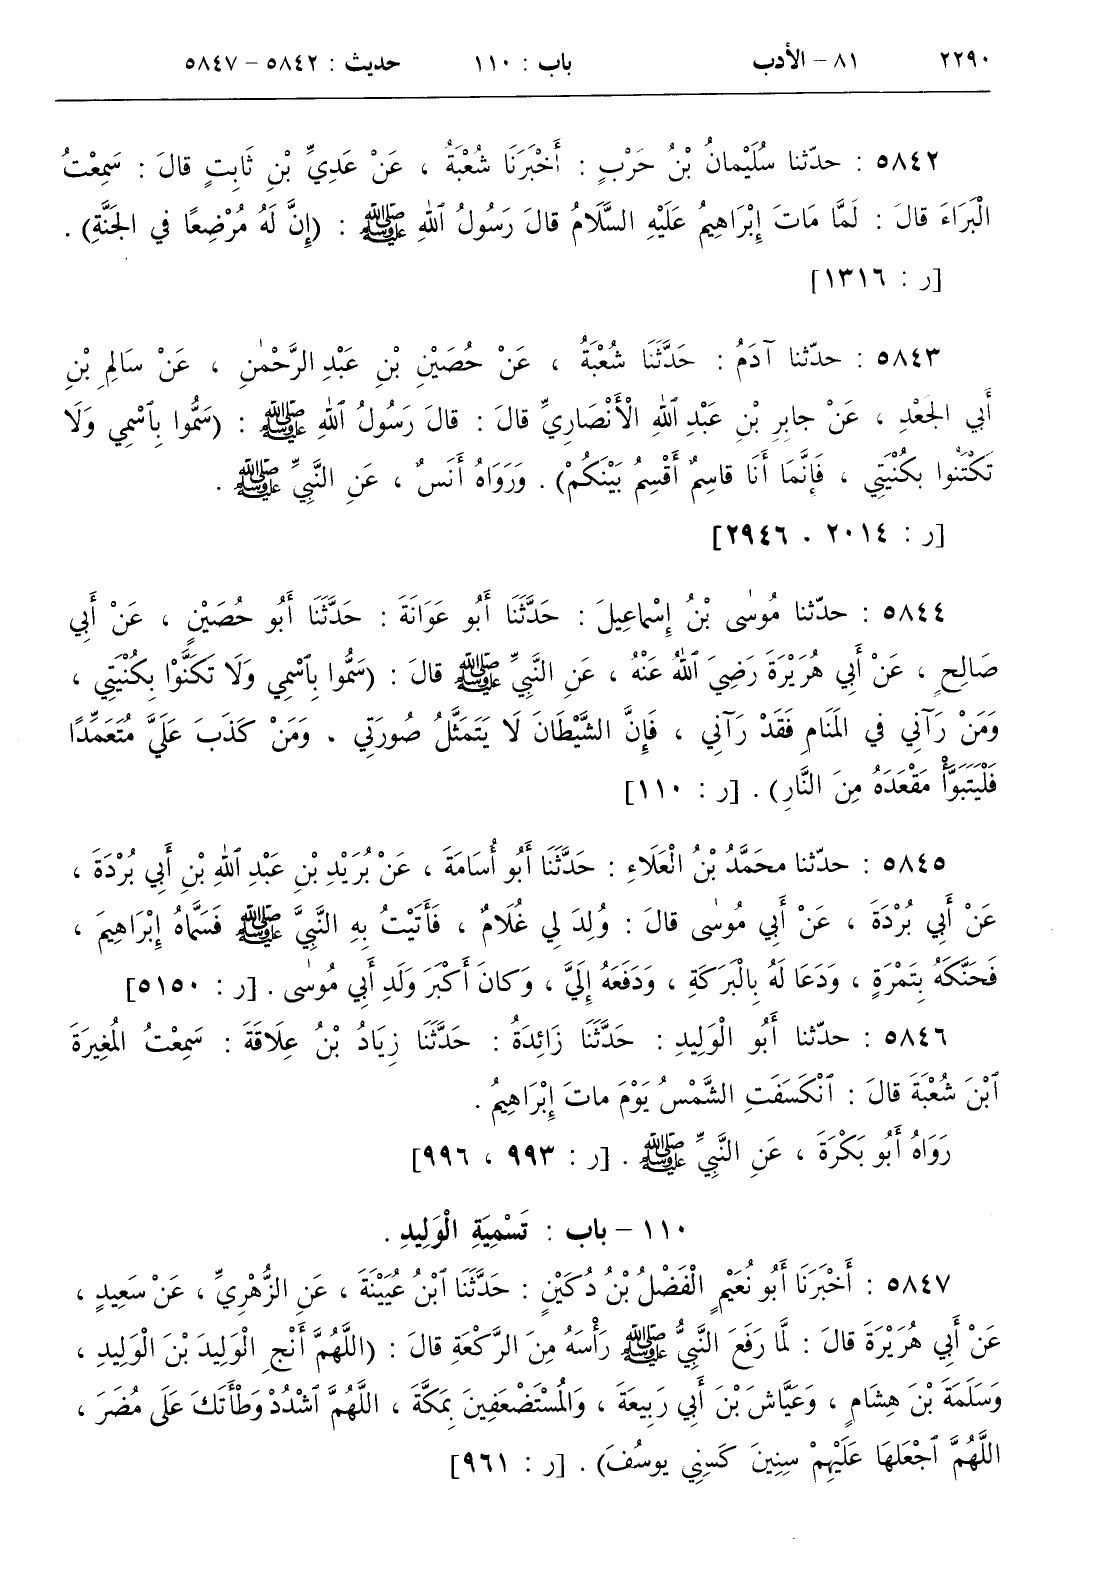 ٢٢٩٠ ٨١ – الأدب باب : ١١٠ حديث : ٥٨٤٢ – ٥٨٤٧
٥٨٤٢ : حدّثنا سُلَيْمانُ بْنُ حَرْبٍ : أَخْبَرَنَا شُعْبَةُ ، عَنْ عَدِيِّ بْنِ ثَابِتٍ قالَ : سَمِعْتُ
الْبَرَاءَ قالَ : لَمَّا مَاتَ إِبْرَاهِيمُ عَلَيْهِ السَّلَامُ قالَ رَسُولُ ٱللهِ ﷺ : (إِنَّ لَهُ مُرْضِعًا في الجَنَّةِ) .
[ر : ١٣١٦]
٥٨٤٣ : حدّثنا آدَمُ : حَدَّثَنَا شُعْبَةُ ، عَنْ حُصَيْنِ بْنِ عَبْدِ الرَّحْمٰنِ ، عَنْ سَالِمِ بْنِ
أَبي الجَعْدِ ، عَنْ جابِرِ بْنِ عَبْدِ ٱللهِ الْأَنْصَارِيِّ قالَ : قالَ رَسُولُ ٱللهِ ﷺ : (سَمُّوا بِٱسْمِي وَلَا
تَكْتَنُوا بِكُنْيَتِي ، فَإِنَّمَا أَنَا قاسِمٌ أَقْسِمُ بَيْنَكُمْ) . وَرَوَاهُ أَنَسٌ ، عَنِ النَّبِيِّ ﷺ .
[ر : ٢٠١٤ ، ٢٩٤٦]
٥٨٤٤ : حدّثنا مُوسٰى بْنُ إِسْماعِيلَ : حَدَّثَنَا أَبُو عَوَانَةَ : حَدَّثَنَا أَبُو حُصَيْنٍ ، عَنْ أَبي
صَالِحٍ ، عَنْ أَبي هُرَيْرَةَ رَضِيَ ٱللهُ عَنْهُ ، عَنِ النَّبِيِّ ﷺ قالَ : (سَمُّوا بِٱسْمِي وَلَا تَكَنَّوْا بِكُنْيَتِي ،
وَمَنْ رَآنِي في المَنَامِ فَقَدْ رَآنِي ، فَإِنَّ الشَّيْطَانَ لَا يَتَمَثَّلُ صُورَتِي . وَمَنْ كَذَبَ عَلَيَّ مُتَعَمِّدًا
فَلْيَتَبَوَّأْ مَقْعَدَهُ مِنَ النَّارِ) . [ر : ١١٠]
٥٨٤٥ : حدّثنا محَمَّدُ بْنُ الْعَلَاءِ : حَدَّثَنَا أَبُو أُسَامَةَ ، عَنْ بُرَيْدِ بْنِ عَبْدِ ٱللهِ بْنِ أَبي بُرْدَةَ ،
عَنْ أَبي بُرْدَةَ ، عَنْ أَبي مُوسٰى قالَ : وُلِدَ لِي غُلَامٌ ، فَأَتَيْتُ بِهِ النَّبِيَّ ﷺ فَسَمَّاهُ إِبْرَاهِيمَ ،
فَحَنَّكَهُ بِتَمْرَةٍ ، وَدَعَا لَهُ بِالْبَرَكَةِ ، وَدَفَعَهُ إِلَيَّ ، وَكانَ أَكْبَرَ وَلَدِ أَبي مُوسٰى . [ر : ٥١٥٠]
٥٨٤٦ : حدّثنا أَبُو الْوَلِيدِ : حَدَّثَنَا زَائِدَةُ : حَدَّثَنَا زِيَادُ بْنُ عِلَاقَةَ : سَمِعْتُ المُغِيرَةَ
ٱبْنَ شُعْبَةَ قالَ : ٱنْكَسَفَتِ الشَّمْسُ يَوْمَ ماتَ إِبْرَاهِيمُ .
رَوَاهُ أَبُو بَكْرَةَ ، عَنِ النَّبِيِّ ﷺ . [ر : ٩٩٣ ، ٩٩٦]
١١٠ – باب : تَسْمِيَةِ الْوَلِيدِ .
٥٨٤٧ : أَخْبَرَنَا أَبُو نُعَيْمٍ الْفَضْلُ بْنُ دُكَيْنٍ : حَدَّثَنَا ٱبْنُ عُيَيْنَةَ ، عَنِ الزُّهْرِيِّ ، عَنْ سَعِيدٍ ،
عَنْ أَبي هُرَيْرَةَ قالَ : لمَّا رَفَعَ النَّبِيُّ ﷺ رَأْسَهُ مِنَ الرَّكْعَةِ قالَ : (اللَّهُمَّ أَنْجِ الْوَلِيدَ بْنَ الْوَلِيدِ ،
وَسَلَمَةَ بْنَ هِشَامٍ ، وَعَيَّاشَ بْنَ أَبي رَبِيعَةَ ، وَالمُسْتَضْعَفِينَ بِمَكَّةَ ، اللَّهُمَّ ٱشْدُدْ وَطْأَتَكَ عَلَى مُضَرَ ،
اللَّهُمَّ ٱجْعَلهَا عَلَيْهِمْ سِنِينَ كَسِنِي يوسُفَ) . [ر : ٩٦١]